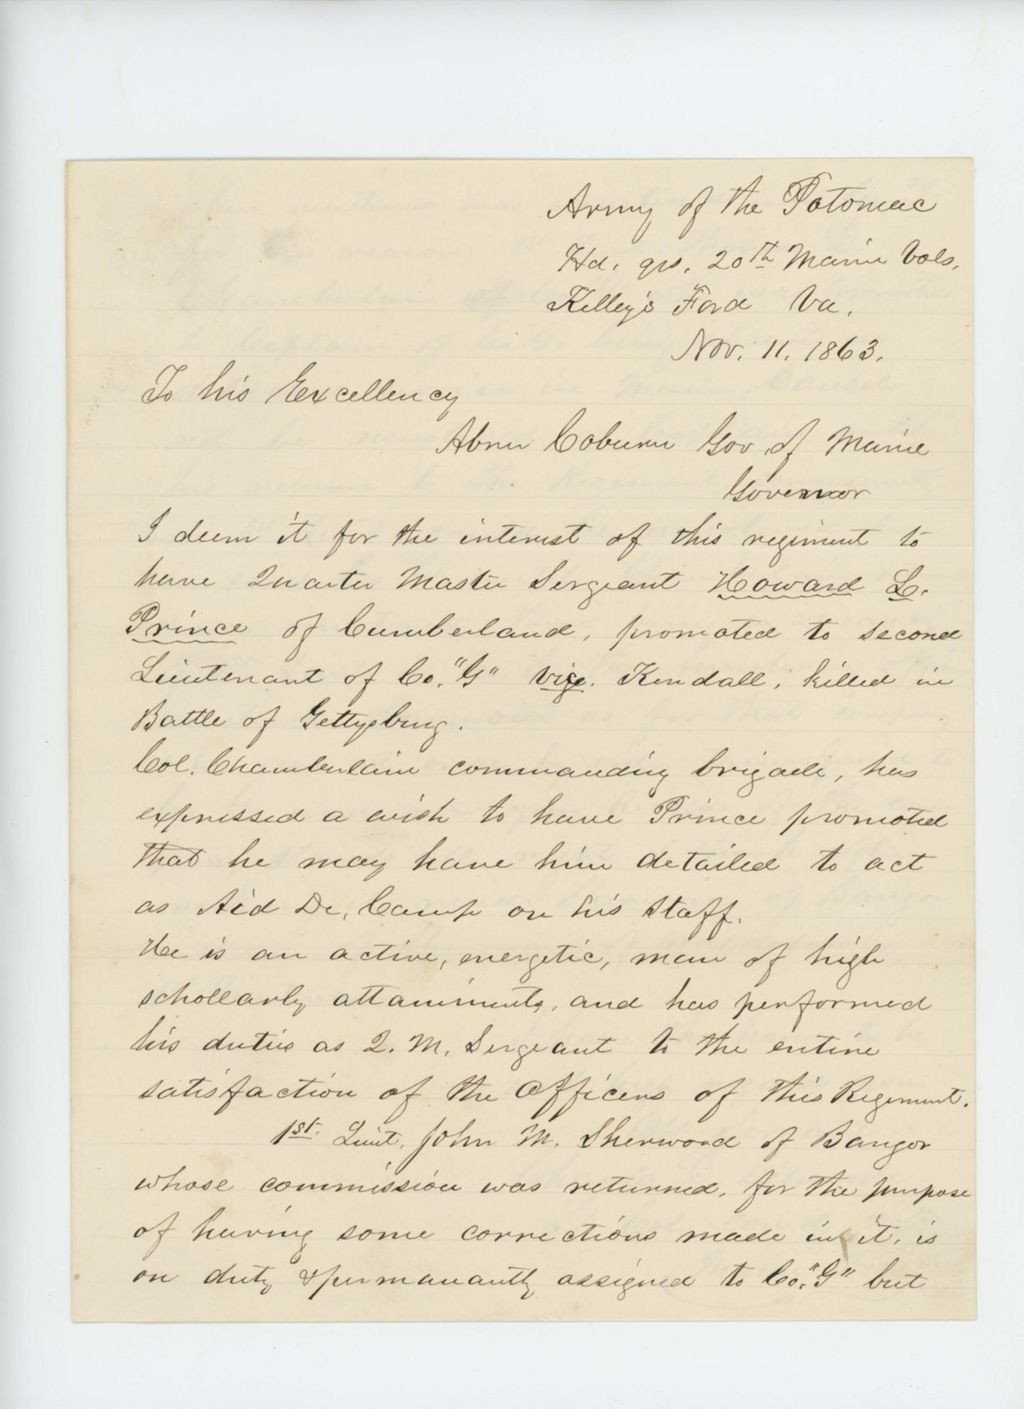 Army of the Potomac
Hd. qrs. 20th Maine Vols.
Kelley's Ford Va.
Nov. 11. 1863.
To his Excellency
Abner Coburn Gov of Maine
Governor
I deem it for the interest of this regiment to
have Quarter Master Sergeant Howard L.
Prince of Cumberland, promoted to second
Lieutenant of Co. "G" vice. Kendall, killed in
Battle of Gettysburg.
Col. Chamberlain commanding brigade, has
expressed a wish to have Prince promoted
that he may have him detailed to act
as Aid De, Camp on his Staff.
He is an active, energetic, man of high
schollarly attainments, and has performed
his duties as Q. M. Sergeant to the entire
satisfaction of the officers of this Regiment.
1st. Lieut. John M. Sherwood of Bangor
whose commission was returned, for the purpose
of having some corrections made in it, is
on duty & permanantly assigned to Co. "G" but